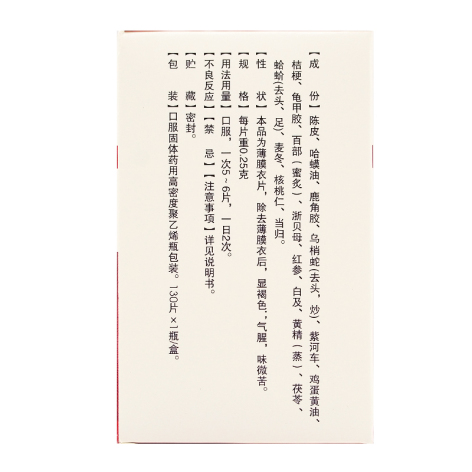 【成　份】陈皮、哈蟆油、鹿角胶、乌梢蛇(去头，炒)、紫河车、鸡蛋黄油、
桔梗、龟甲胶、百部（蜜炙）、浙贝母、红参、白及、黄精（蒸）、茯苓、
蛤蚧(去头、足)、麦冬、核桃仁、当归。
【性　状】本品为薄膜衣片，除去薄膜衣后，显褐色；气腥，味微苦。
【规　格】每片重0.25克
【用法用量】口服，一次5~6片，一日2次。
【不良反应】【禁　忌】【注意事项】详见说明书。
【贮　藏】密封。
【包　装】口服固体药用高密度聚乙烯瓶包装。130片×1瓶/盒。